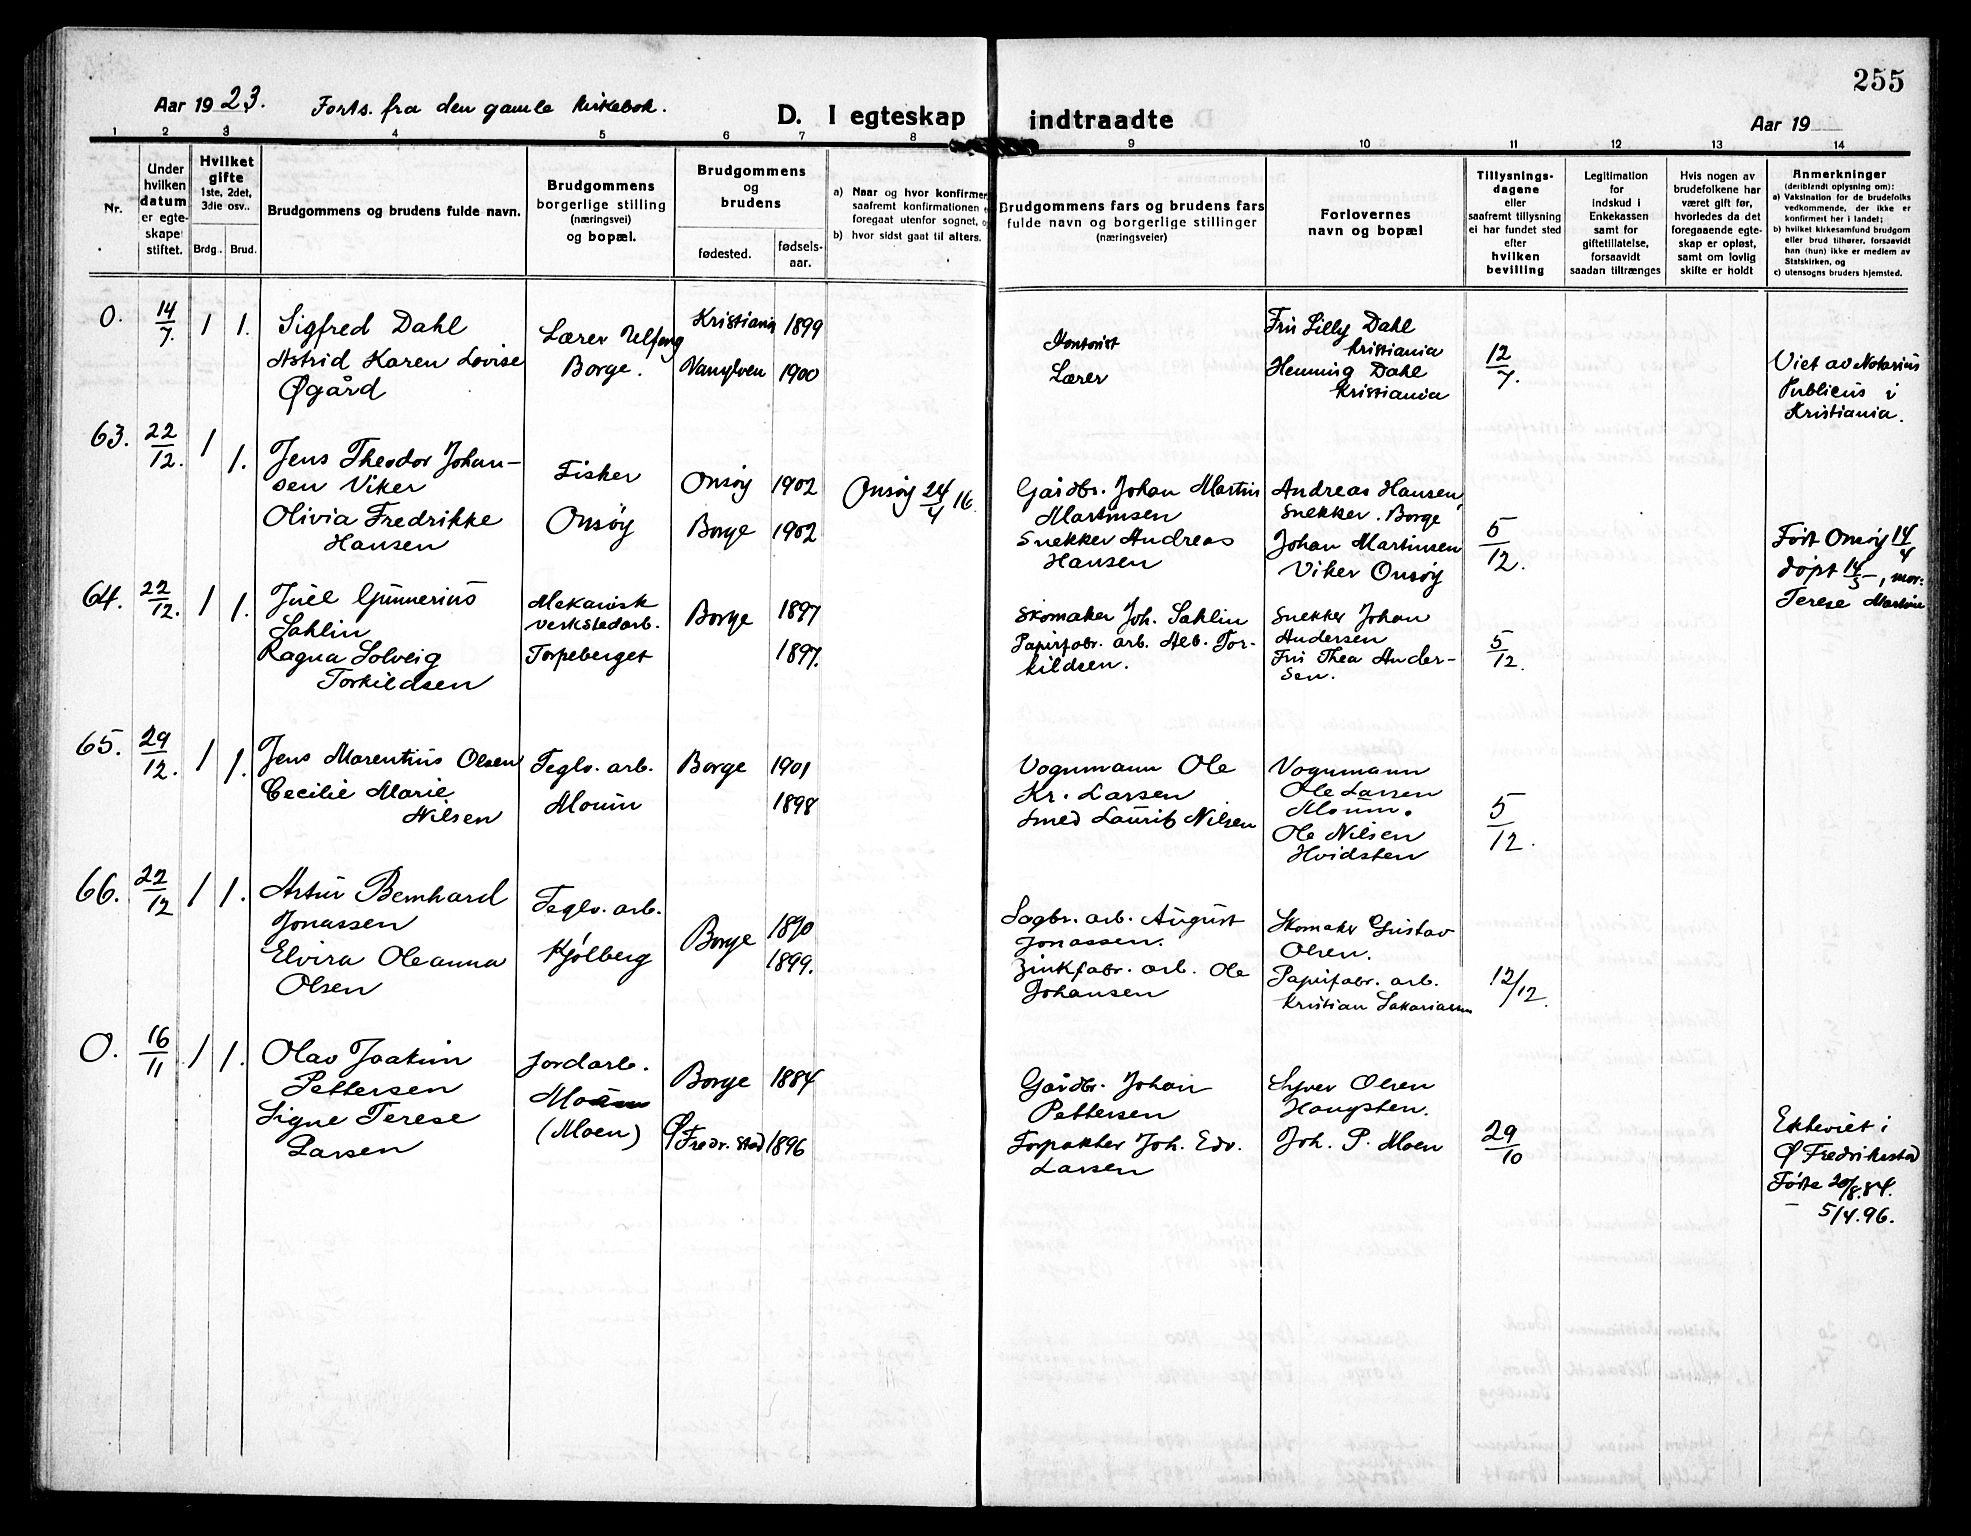 255
Aar 1923. Forts. fra den gamle kirkebok.
D. I egteskap indtraadte
Aar 19
1 2 3 4 5 6 7 8 9 10 11 12 13 14
Nr.
Under
hvilken
datum
er egte-
skapet
stiftet.
Hvilket
gifte
1ste, 2det,
3die osv..
Brdg. Brud.
Brudgommens og brudens fulde navn.
Brudgommens
borgerlige stilling
(næringsvei)
og bopæl.
Brudgommens
og
brudens
fødested.
fødsels-
aar.
a) Naar og hvor konfirmer
saafremt konfirmationen
foregaat utenfor sognet,
b) hvor sidst gaat til alters.
Brudgommens fars og brudens fars
fulde navn og borgerlige stillinger
(næringsveier)
Forlovernes
navn og bopæl
Tillysnings-
dagene
eller
saafremt tillysning
ei har fundet sted
efter
hvilken
bevilling
Legitimation
for
indskud i
Enkekassen
samt for
giftetillatelse,
forsaavidt
saadan tiltrænges
Hvis nogen av
brudefolkene har
været gift før,
hvorledes da det
foregaaende egte-
skap er opløst,
samt om lovlig
skifte er holdt
Anmerkninger
(deriblandt oplysning om):
a) Vaksination for de brudefolks
vedkommende, der ikke er
konfirmert her i landet;
b) hvilket kirkesamfund brudgom
eller brud tilhører, forsaavidt
han (hun) ikke er medlem av
Statskirken, og
c) utensogns bruders hjemsted.
0. 14/7. 1 1.
Sigfred Dahl
Astrid Karen Lovise
Øgård
Lærer
Borge.
Kristiania 1899
Vanylven 1900
Kontorist
Lærer
Frk Lilly Dahl
Kristiania
Henning Dahl
Kristiania
12/7.
Viet av Notarius
Publicus i
Kristiania.
63. 22/12. 1 1.
Jens Theodor Johan-
sen Viker
Olivia Fredrikke
Hansen
Fisker
Onsøy
Onsøy 1902
Borge 1902
Onsøy 24/4 16.
Gårdbr. Johan Martin
Martinsen
Snekker Andreas
Hansen
Andreas Hansen,
Snekker. Borge
Johan Martinsen
Viker Onsøy
5/12.
Født Onsøy 14/4
døpt 14/5, mor:
Terese Martine
64. 22/12. 1 1.
Juel Gunnerius
Sahlin
Ragna Solveig
Torkildsen
Mekanisk
verkstedarb.
Torpeberget
Borge 1897
1897.
Skomaker Joh. Sahlin
Papirfabr. arb. Alb. Tor-
kildsen.
Snekker Johan
Andersen
Frk Thea Ander-
sen.
5/12.
65. 29/12. 1 1.
Jens Marentius Olsen
Cecilie Marie
Nilsen
Teglv. arb.
Moum
Borge 1901
1898
Vognmann Ole
Kr. Larsen
Smed Laurits Nilsen
Vognmann
Ole Larsen
Moum.
Ole Nilsen
Hvidsten
5/12.
66. 22/12 1 1.
Artur Bernhard
Jonassen
Elvira Oleanna
Olsen
Teglv. arb.
Kjølberg
Borge 1890
1899.
Sagbr. arb. August
Jonassen.
Zinkfabr. arb. Ole
Johansen
Skomaker Gustav
Olsen.
Papirfabr. arb.
Kristian Sakariassen
12/12.
0. 16/11 1 1.
Olav Joakim
Pettersen
Signe Terese
Larsen
Jordarb.
(Moen)
Borge 1884
Ø Fredr.stad 1896
Gårdbr. Johan
Pettersen
Forpakter Joh. Edv.
Larsen
Syver Olsen
Haugsten.
Joh. P. Moen
29/10
Ekteviet i
Ø Fredrikstad
Fødte 20/8.84.
– 5/4.96.